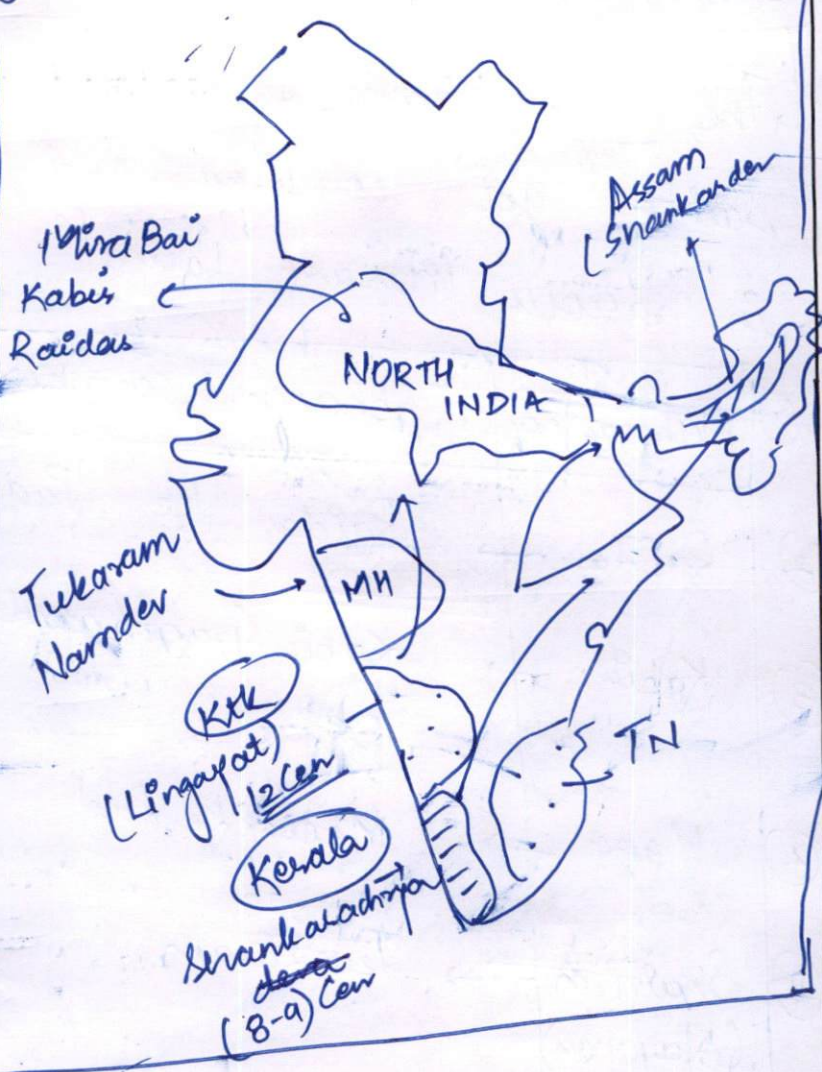 Assam
(Shankardev
Mira Bai
Kabir
Raidas
NORTH
INDIA
Tukaram
Namdev
MH
Ktk
(Lingayat)
12 Cen
TN
Kerala
Shankaracharya
(8-9) Cen